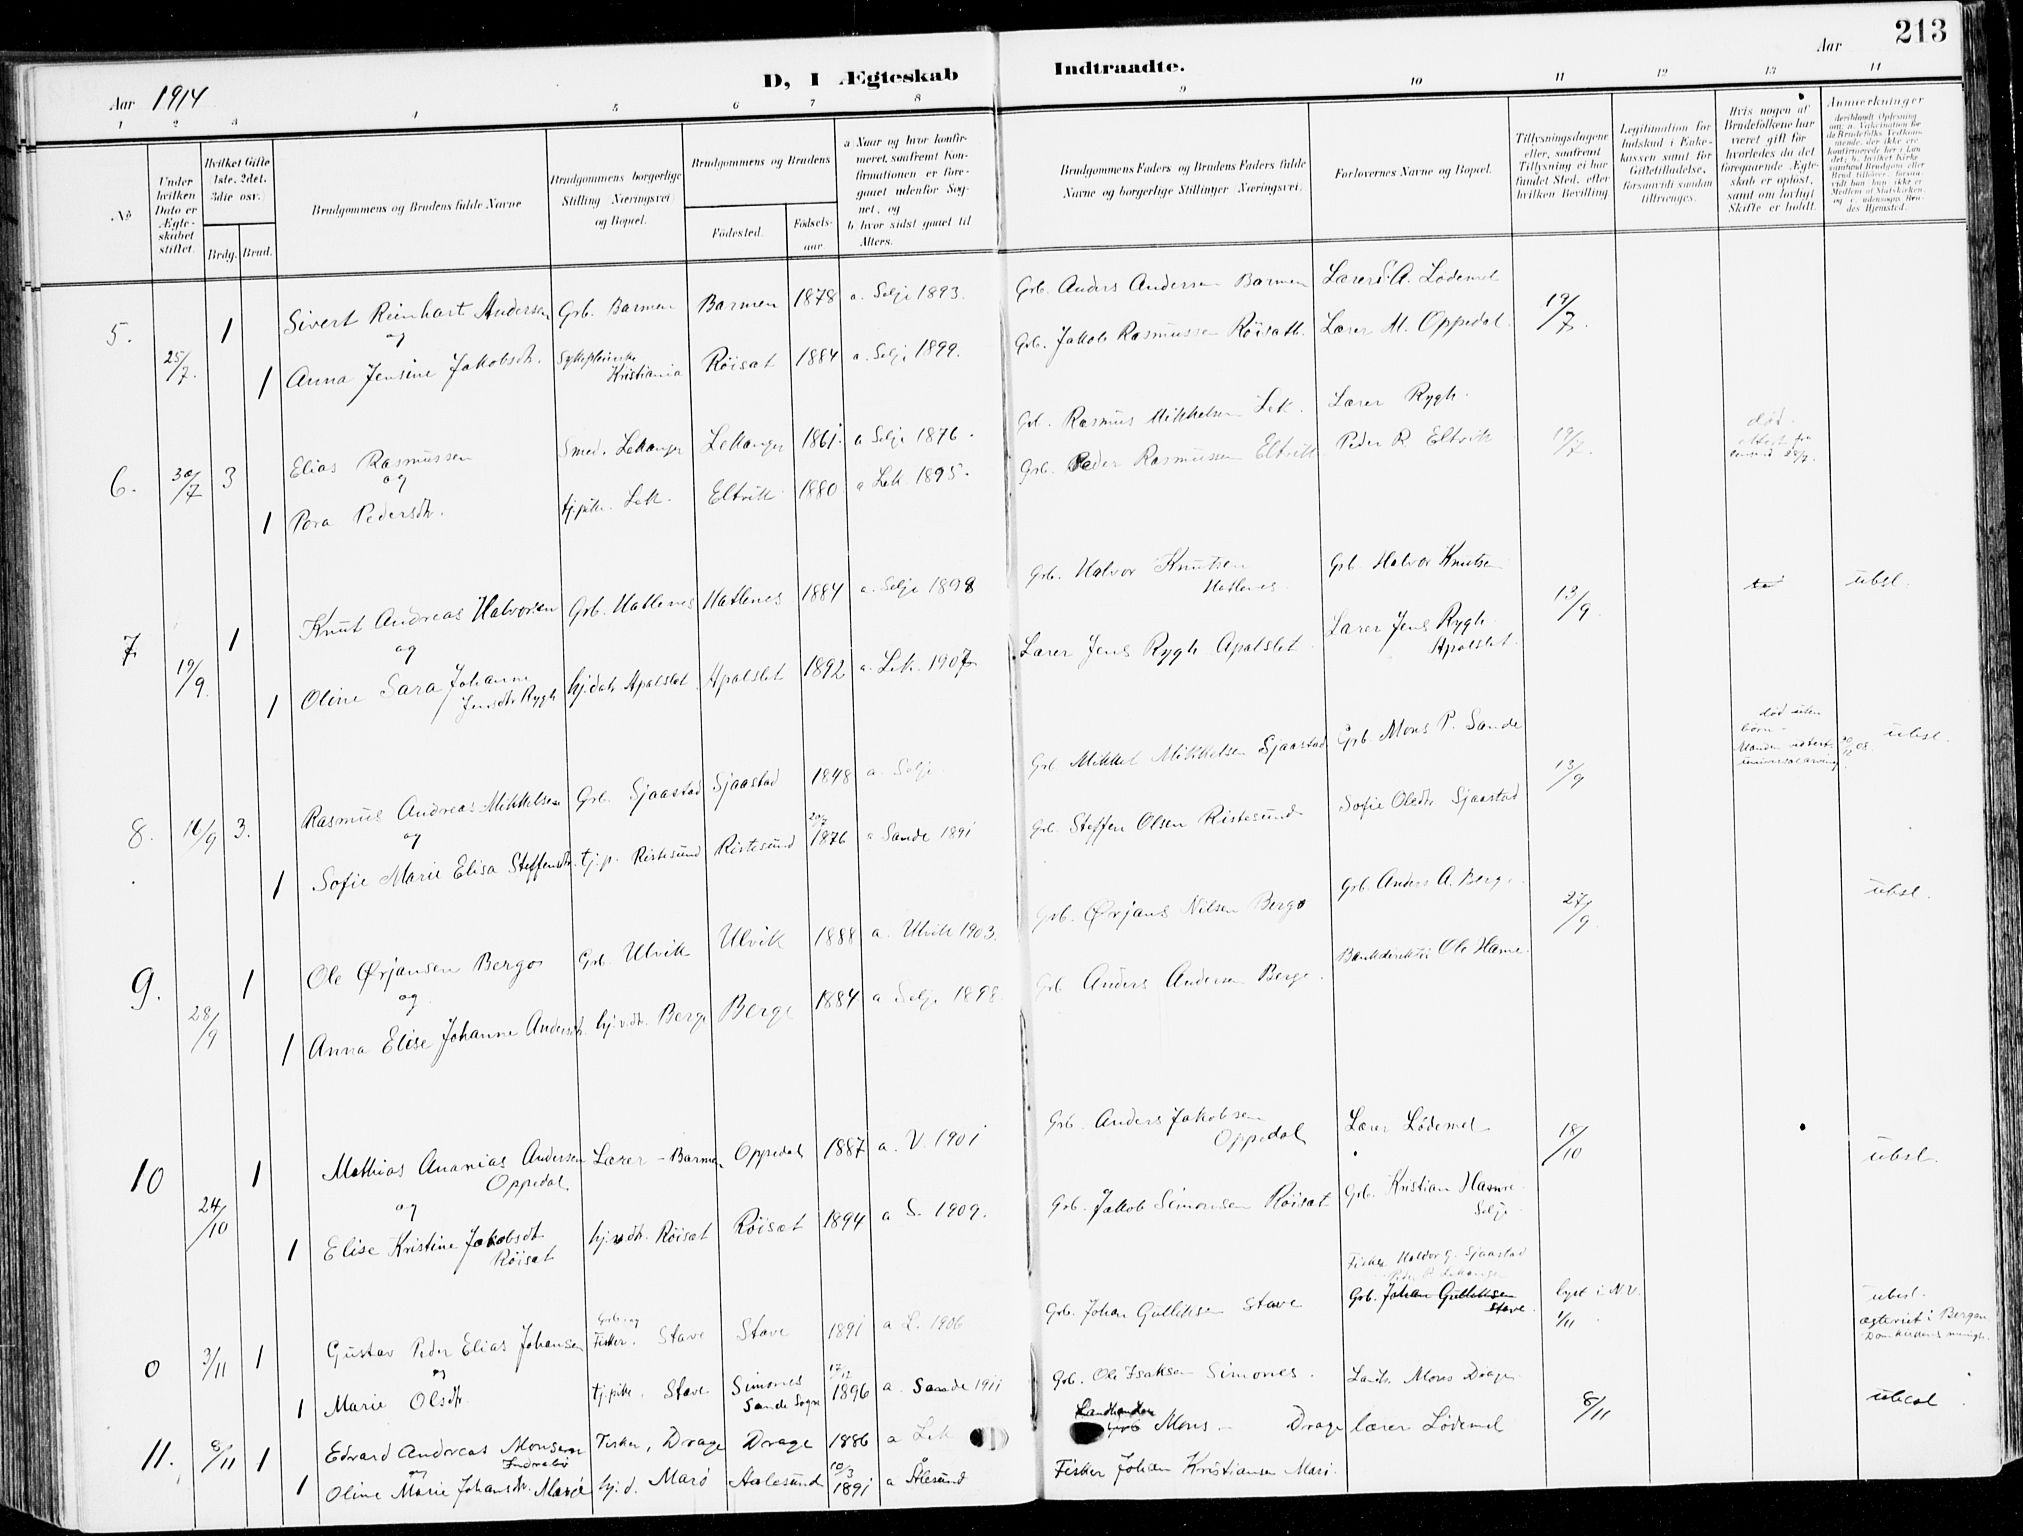 213
Aar 1914
D, I Ægteskab Indtraadte.
Aar
1 2 3 4 5 6 7 8 9 10 11 12 13 14
No
Under hvilken Dato er Ægteskabet stiftet.
Hvilket Gifte 1ste, 2det, 3die osv.
Brdg. Brud.
Brudgommens og Brudens fulde Navne
Brudgommens borgerlige Stilling (Næringsvei) og Bopæl.
Brudgommens og Brudens
Fødested. Fødselsaar.
a Naar og hvor konfirmeret, saafremt Konfirmationen er foregaaet udenfor Sognet, og
b hvor sidst gaaet til Alters.
Brudgommens Faders og Brudens Faders fulde Navne og borgerlige Stillinger (Næringsvei.
Forlovernes Navne og Bopæl.
Tillysningsdagene eller, saafremt Tillysning ei har fundet Sted, efter hvilken Bevilling
Legitimation for Indskud i Enkekassen samt for Giftetilladelse, forsaavidt saadan tiltrænges.
Hvis nogen af Brudefolkene har været gift før hvorledes da det foregaaende Ægteskab er opløst, samt om lovligt Skifte er holdt.
Anmerkninger
5. 25/7. 1 Sivert Reinhart Andersen Grb. Barmen Barmen 1878 a. Selje 1893. Grb. Anders Andersen Barmen Lærer S. A. Lødemel 19/7.
og
1 Anna Jensine Jakobsdtr. Sykepleierske Kristiania Røisæt 1884 a. Selje 1899. Grb. Jakob Rasmussen Røisæt. Lærer M. Oppedal.
6. 30/7 3 Elias Rasmussen Smed. Lekanger Lekanger 1861. a Selje 1876. Rasmus Mikkelsen Lek. Lærer Rygh. 19/7. død.
og
1 Pedersdtr. Lek. Eltvik 1880 a Lek 1895. Grb. Peder Rasmussen Eltvik Peder R. Eltvik
7. 19/9. 1 Knut Andreas Halvorsen Grb. Hatlenes Hatlenes 1884 a. Selje 1898 Grb. Halvor Knutsen Hatlenes. Grb. Halvor Knutsen 13/9. ubsl.
og
1 Oline Sara Johanne Jensdtr Rygh hj.datr Apalset Apalset 1892 a. Lek. 1907. Lærer Jens Rygh Apalset. Lærer Jens Rygh. Apalset.
8. 16/9 3. Rasmus Andreas Mikkelsen Grb. Sjaastad Sjaastad 1848 a. Selje. Grb. Mikkel Mikkelsen Sjaastad Grb Mons P. Sande 13/9 død uten børn. ubsl.
og
1 Sofie Marie Elisa Steffensdtr. tj.p. Ristesund Ristesund 20/7 1876 a Sande 1891 Grb. Steffen Olsen Ristesund Sofie Olsdtr Sjaastad
9. 28/9 1 Ole Ørjansen Bergo Grb. Ulvik Ulvik 1888 a. Ulvik 1903. Grb. Ørjans Nilsen Bergo Grb. Anders A. Berge. 27/9. ubsl.
og
1 Anna Elise Johanne Andersdtr. hj.v.dtr. Berge Berge 1884 a Selje 1898. Grb Anders Andersen Berge. Bankdirektør Ole Hamre.
10 24/10 1 Mathias Ananias Andersen Oppedal Lærer - Barmen Oppedal 1887 a. V. 1901 Grb. Anders Jakobsen Oppedal Lærer Lødemel 18/10 ubsl.
og
1 Elise Kristine Jakobsdt Røisæt hj.v.dtr. Røisæt Røisæt 1894 a S. 1909. Grb. Jakob Simonsen Røisæt Grb. Kristian Hamre. Selje.
Fisker Haldor G. Sjaastad
Peder P. Lekanger
0 3/11 1 Gustav Peder Elias Johansen Grb. og Fisker. Stave Stave 1891 a L. 1906 Grb. Johan Gulliksen Stave Grb. Johan Gulliksen Stave lyst i N.V. 1/11. ubsl.
og
1 Marie Olsdtr. tj.pike. Stave Simones Sande Sogn 17/12 1896 a. Sande 1911 Grb. Ole Isaksen Simones. Landh. Mons Drage
11. 8/11 1 Edvard Andreas Monsen Indrebø Fisker, Drage Drage 1886 a Lek Landhandler Mons Drage lærer Lødemel 8/11 ubesl
og
1 Oline Marie Johansdtr. Marø hj.d. Marø Aalesund 10/3 1891 a Ålesund Fisker Johan Kristiansen Marø.